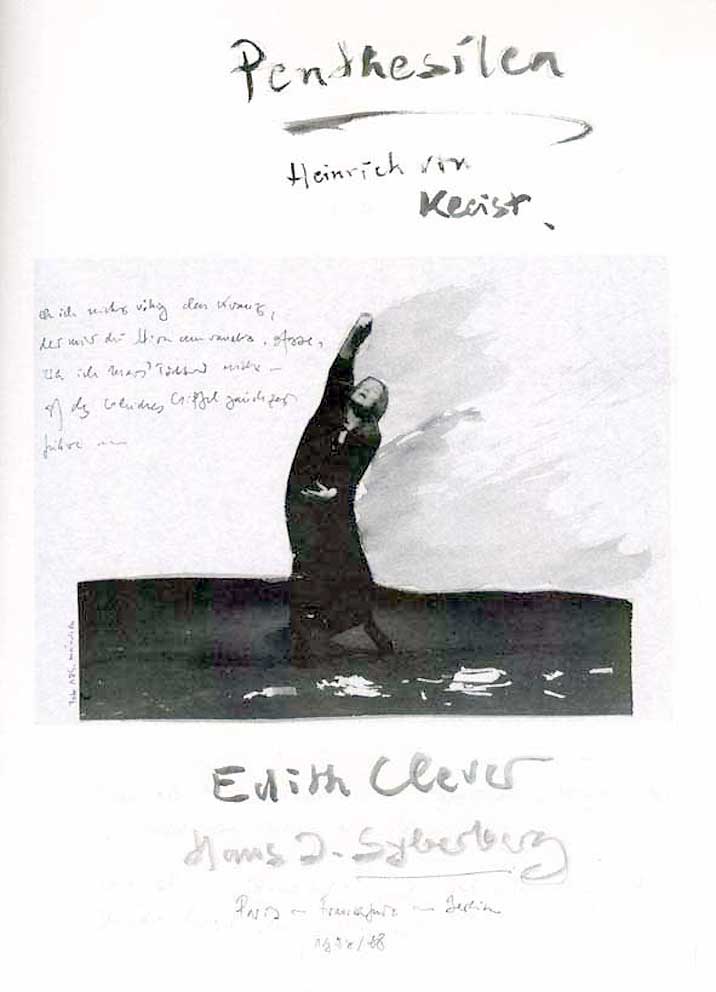 Penthesilea
Heinrich von
Kleist.
Eh ich nicht völlig den Kranz,
der mir die Stirn umrauscht, erfasse,
Eh ich Mars' Töchter nicht –
auf des Glückes Gipfel jauchzend
führe —
Edith Clever
Hans J. Syberberg
Paris – Frankfurt – Berlin
1987/88